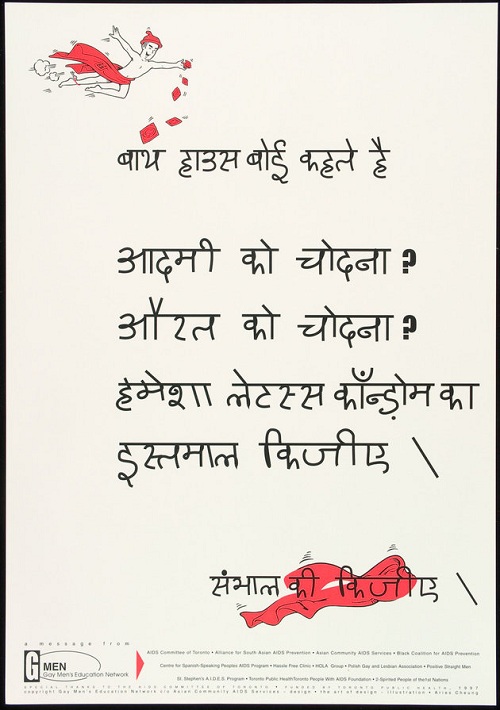 बाथ हाउस बोई कहते है
आदमी को चोदना ?
औरत को चोदना ?
हमेशा लेटस्स कॉंन्ड़ोम का
इस्तमाल किजीए \
संभाल की किजीए \
a message from
G MEN
Gay Men's Education Network
AIDS Committee of Toronto • Alliance for South Asian AIDS Prevention • Asian Community AIDS Services • Black Coalition for AIDS Prevention
Centre for Spanish-Speaking Peoples AIDS Program • Hassle Free Clinic • HOLA Group • Polish Gay and Lesbian Association • Positive Straight Men
St. Stephen's A.I.D.E.S. Program • Toronto Public Health Toronto People With AIDS Foundation • 2-Spirited People of the 1st Nations
SPECIAL THANKS TO THE AIDS COMMITTEE OF TORONTO • FUNDED BY TORONTO PUBLIC HEALTH, 1997
copyright Gay Men's Education Network c/o Asian Community AIDS Services • design • the art of design • illustration • Arlas Cheung